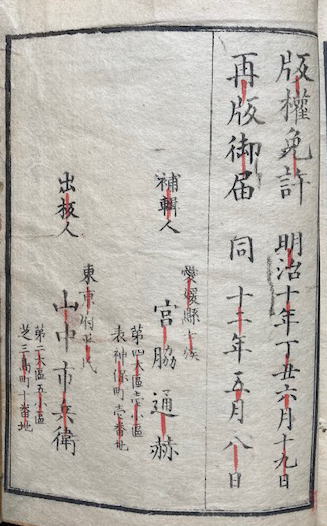 版權免許 明治十年丁丑六月十九日
再版御届 同 十二年五月八日
補輯人
愛媛縣士族
宮脇通赫
第四大區壱小區
表神保町壱番地
出板人
東京府平民
山中市兵衛
第二大區五小區
芝三島町十番地